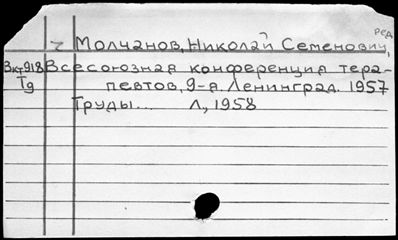 ред
Молчанов, Николай Семенович,
Вкт918 Всесоюзная конференция тера-
Т9 певтов, 9-я. Ленинград. 1957
Труды... Л, 1958